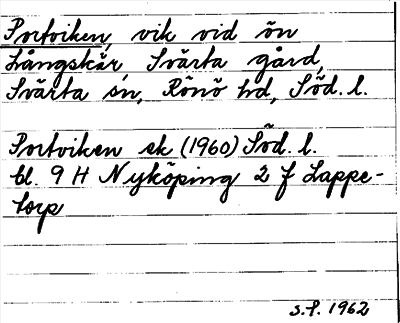 Portviken, vik vid ön
Långskär, Svärta gård,
Svärta sn, Rönö hd, Söd. l.
Portviken ek (1960) Söd. l.
bl. 9 H Nyköping 2 f Lappe-
torp
S.F. 1962